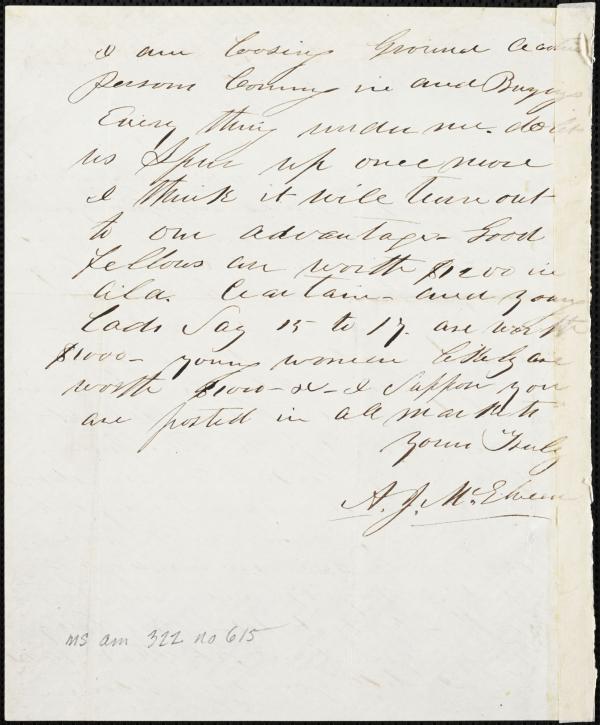 I am Loosing Ground
persons Coming in and Buying
Every thing under me. do let
us Spur up once more
I think it will turn out
to our advantage - Good
fellows are worth $1200 in
Ala. Certain - and young
Lads Say 15 to 17. are worth
$1000 - young women likely are
worth $1000 - & - I Suppose you
are posted in all markets
yours Truly
A. J. McElveen
ms am 322 no 615